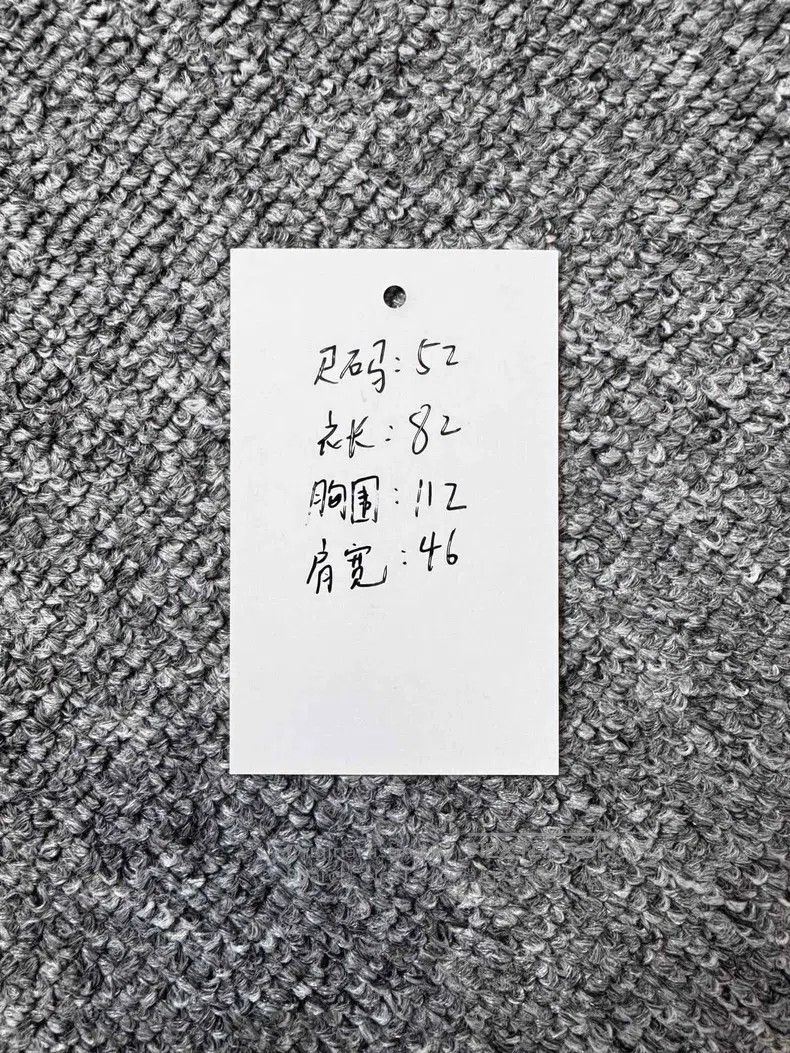 尺码:52
衣长:82
胸围:112
肩宽:46